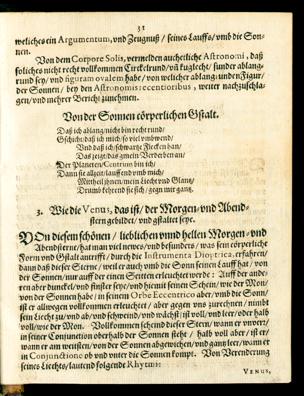 31
weliches ein Argumentum, und Zeugnuß / seines Lauffs / umb die Son-
nen.
Von dem Corpore Solis, vermelden auch etliche Astronomi, daß
soliches nicht recht vollkommen Circkelrund / vñ kuglecht / sunder ablang-
rund sey / und figuram ovalem habe / von welicher ablang: unden Figur /
der Sonnen / bey den Astronomis recentioribus, weiter nachzuschla-
gen / und mehrer Bericht zunehmen.
Von der Sonnen cörperlichen Gstalt.
Daß ich ablang / nicht bin recht rund /
Gschicht / daß ich mich / so viel umbwend /
Und daß ich / schwartze Flecken han /
Das zeigt / das gmein Verderben an /
Der Planeten / Centrum bin ich /
Dann sie all geit / lauffend umb mich /
Mittheil ihnen / mein Liecht und Glantz /
Drumb kehrend sie sich / gegn mir gantz.
3. Wie die Venus, das ist / der Morgen- und Abend-
stern gebildet / und gstaltet seye.
VOn diesem schönen / lieblichen unnd hellen Morgen- und
Abendstern / hat man viel newes / und besunders / was sein cörperliche
Form und Gstalt antrifft / durch die Instrumenta Dioptrica, erfahren /
dann daß dieser Stern / weil er auch umb die Sonn seinen Lauff hat / von
der Sonnen / nur auff der einen Seitten erleuchtet werde: Auff der ande-
ren aber dunckel / und finster seye / und hiemit seinen Schein / wie der Mon /
von der Sonnen habe: in seinem Orbe Eccentrico aber / umb die Sonn /
ist er allwegen vollkommen erleuchtet / aber gegen uns zurechnen / nimbt
sein Liecht zu / und ab / und schwend / und wächst / ist voll / und leer / oder halb
voll / wie der Mon. Vollkommen scheind dieser Stern / wann er vnwer /
in seiner Conjunction oberhalb der Sonnen steht / halb voll aber / ist er /
wann er am weitsten / von der Sonnen abgewichen / und gantz leer / wann er
in Conjunctione ob und unter die Sonnen kompt. Von Verenderung
seines Liechts / lautend folgende Rhytmi:
VENUS,